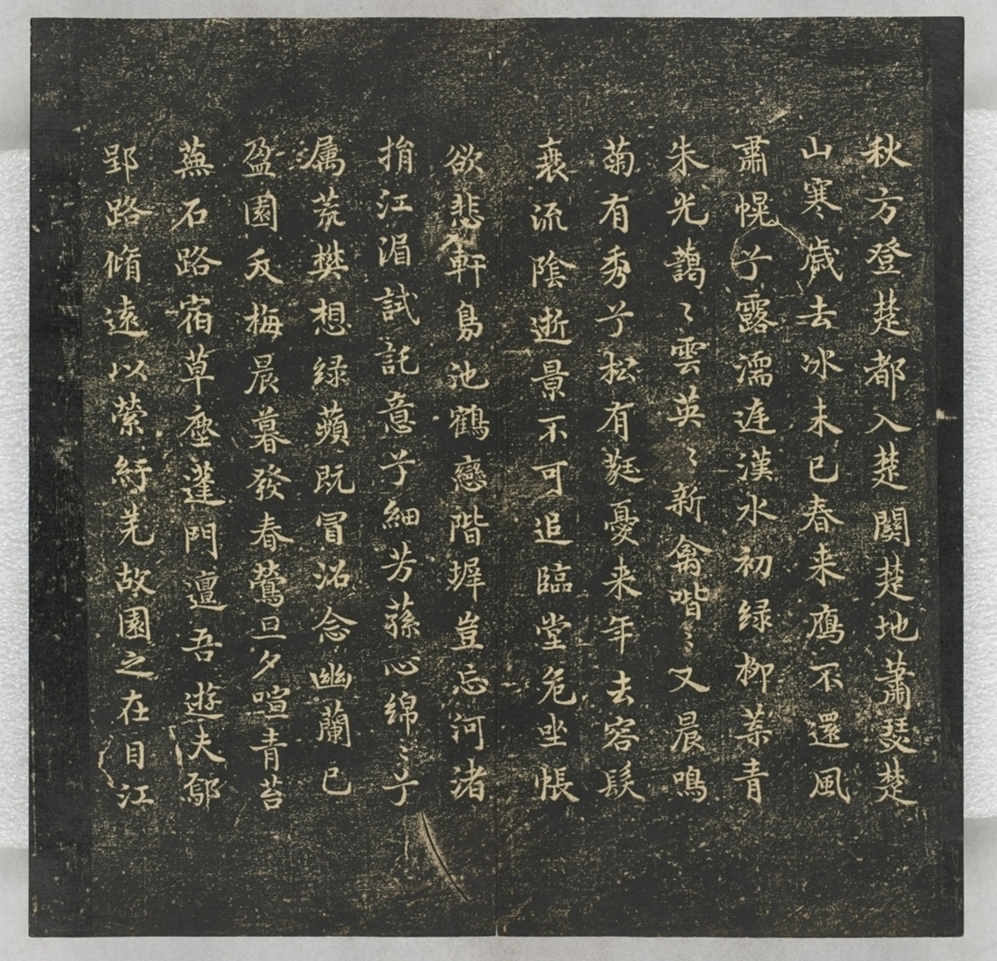 秋方登楚都入楚関楚地蕭瑟楚
山寒歲去冰未已春来鴈不還風
肅幌兮露濡庭漢水初緑柳葉青
朱光藹〻雲英〻新禽喈〻又晨鳴
菊有秀兮松有蕤憂来年去容髮
衰流陰逝景不可追臨堂危坐悵
欲悲軒鳧池鶴戀階墀豈忘河渚
捐江湄試託意兮細芳蓀心綿〻兮
属荒樊想緑蘋既冒沼念幽蘭已
盈園夭梅晨暮發春鶯旦夕喧青苔
蕪石路宿草塵蓬門邅吾遊夫鄢
郢路脩遠以縈紆羌故園之在目江